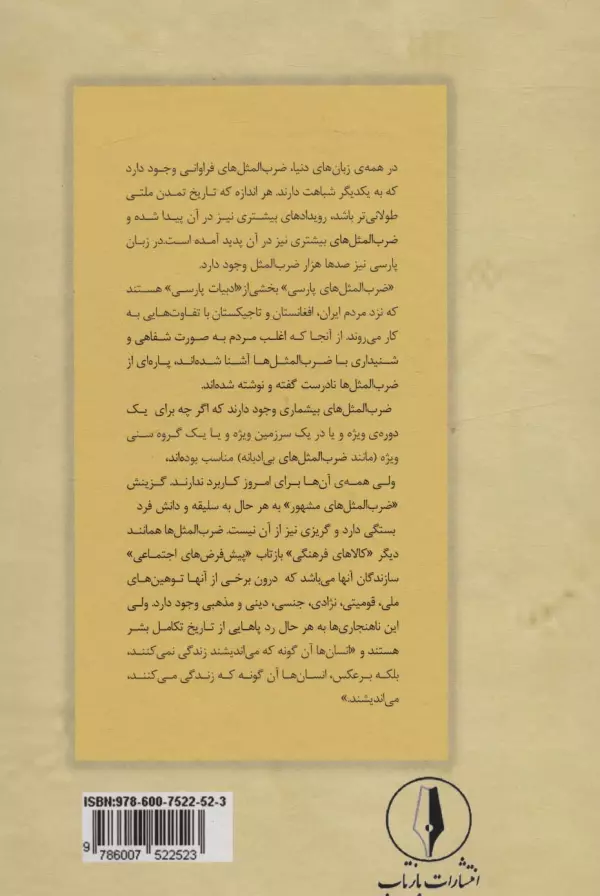 در همه‌ی زبان‌های دنیا، ضرب‌المثل‌های فراوانی وجود دارد
که به یکدیگر شباهت دارند. هر اندازه که تاریخ تمدن ملتی
طولانی‌تر باشد، رویدادهای بیشتری نیز در آن پیدا شده و
ضرب‌المثل‌های بیشتری نیز در آن پدید آمده است.در زبان
پارسی نیز صدها هزار ضرب‌المثل وجود دارد.
«ضرب‌المثل‌های پارسی» بخشی از«ادبیات پارسی» هستند
که نزد مردم ایران، افغانستان و تاجیکستان با تفاوت‌هایی به
کار می‌روند. از آنجا که اغلب مردم به صورت شفاهی و
شنیداری با ضرب‌المثل‌ها آشنا شده‌اند، پاره‌ای از
ضرب‌المثل‌ها نادرست گفته و نوشته شده‌اند.
ضرب‌المثل‌های بیشماری وجود دارند که اگر چه برای یک
دوره‌ی ویژه و یا در یک سرزمین ویژه و یا یک گروه سنی
ویژه (مانند ضرب‌المثل‌های بی‌ادبانه) مناسب بوده‌اند،
ولی همه‌ی آن‌ها برای امروز کاربرد ندارند. گزینش
«ضرب‌المثل‌های مشهور» به هر حال به سلیقه و دانش فرد
بستگی دارد و گریزی نیز از آن نیست. ضرب‌المثل‌ها همانند
دیگر «کالاهای فرهنگی» بازتاب «پیش‌فرض‌های اجتماعی»
سازندگان آنها می‌باشد که درون برخی از آنها توهین‌های
ملی، قومیتی، نژادی، جنسی، دینی و مذهبی وجود دارد. ولی
این ناهنجاری‌ها به هر حال رد پاهایی از تاریخ تکامل بشر
هستند و «انسان‌ها آن گونه که می‌اندیشند زندگی نمی‌کنند،
بلکه برعکس، انسان‌ها آن گونه که زندگی می‌کنند،
می‌اندیشند.»
ISBN:978-600-7522-52-3
9 786007 522523
انتشارات بازتاب